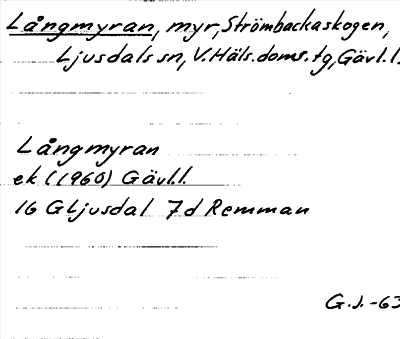 Långmyran, myr, Strömbackaskogen,
Ljusdals sn, V. Häls. doms. tg, Gävl. l.
Långmyran
ek (1960) Gävl. l.
16 G Ljusdal 7d Remman
G. J. -63